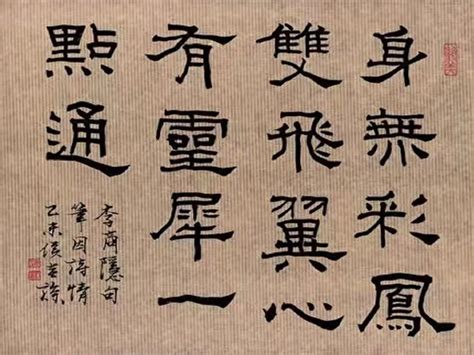 身無彩鳳
雙飛翼心
有靈犀一
點通
李商隱句
筆因詩情
乙未